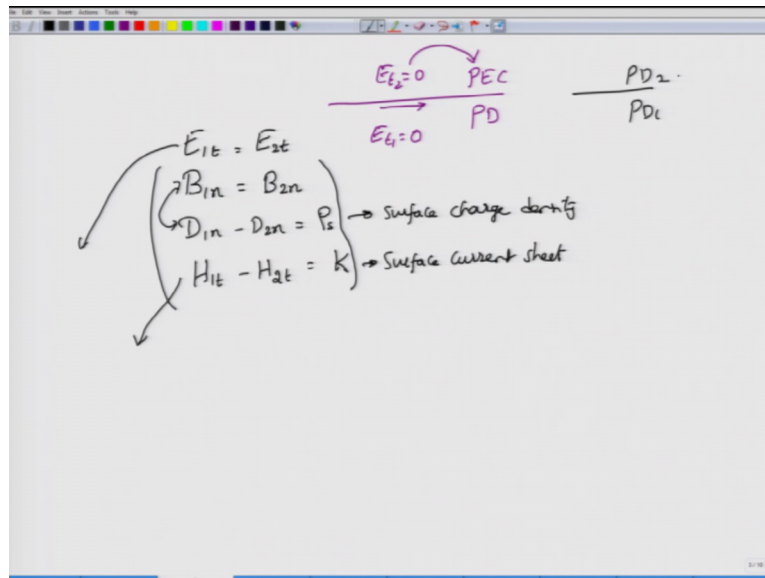 File Edit View Insert Actions Tools Help
E_{t2}=0 PEC
E_{t1}=0 PD
PD_2.
PD_1
E_{1t} = E_{2t}
B_{1n} = B_{2n}
D_{1n} - D_{2n} = ρ_s → Surface charge density
H_{1t} - H_{2t} = K → Surface current sheet